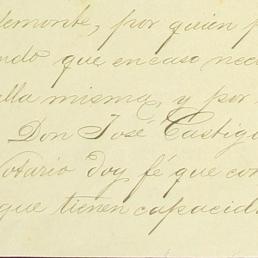 lemonte, por quien p
ndo que en caso nec
lla misma, y por
Don José Castig
Notario doy fé que con
que tienen capacid